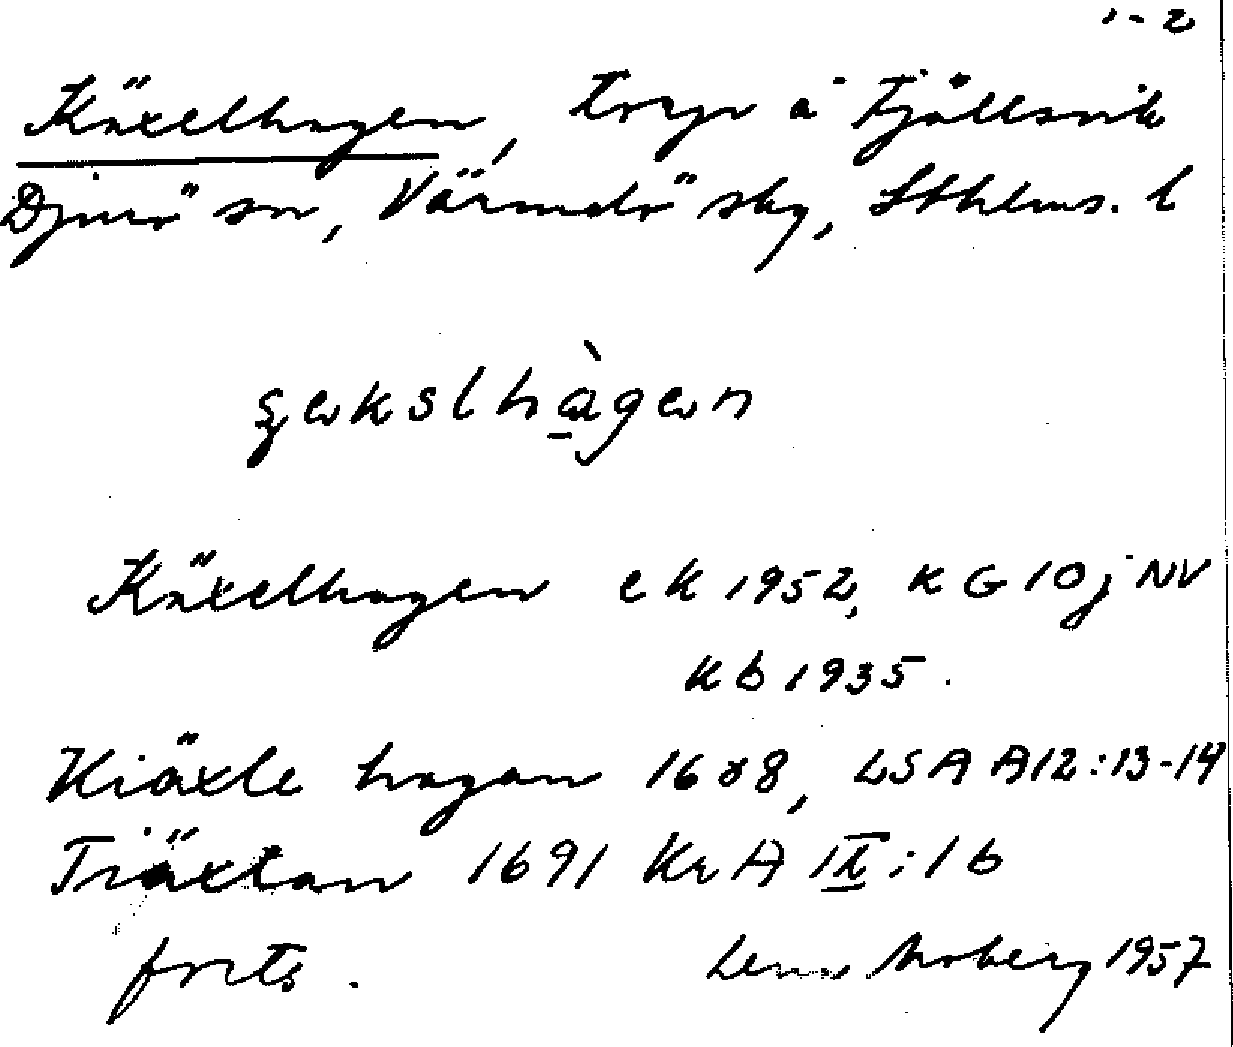 1-2
Käxelhagen, torp å Fjällsvik
Djurö sn, Värmdö skg, Sthlms. l
Käxelhagen ek 1952, KG 10j NV
Kb 1935.
Kiäxle hagan 1688, LSA A12:13-14
Tiäxtan 1691 KrA IX:16
forts. Lena Moberg 1957